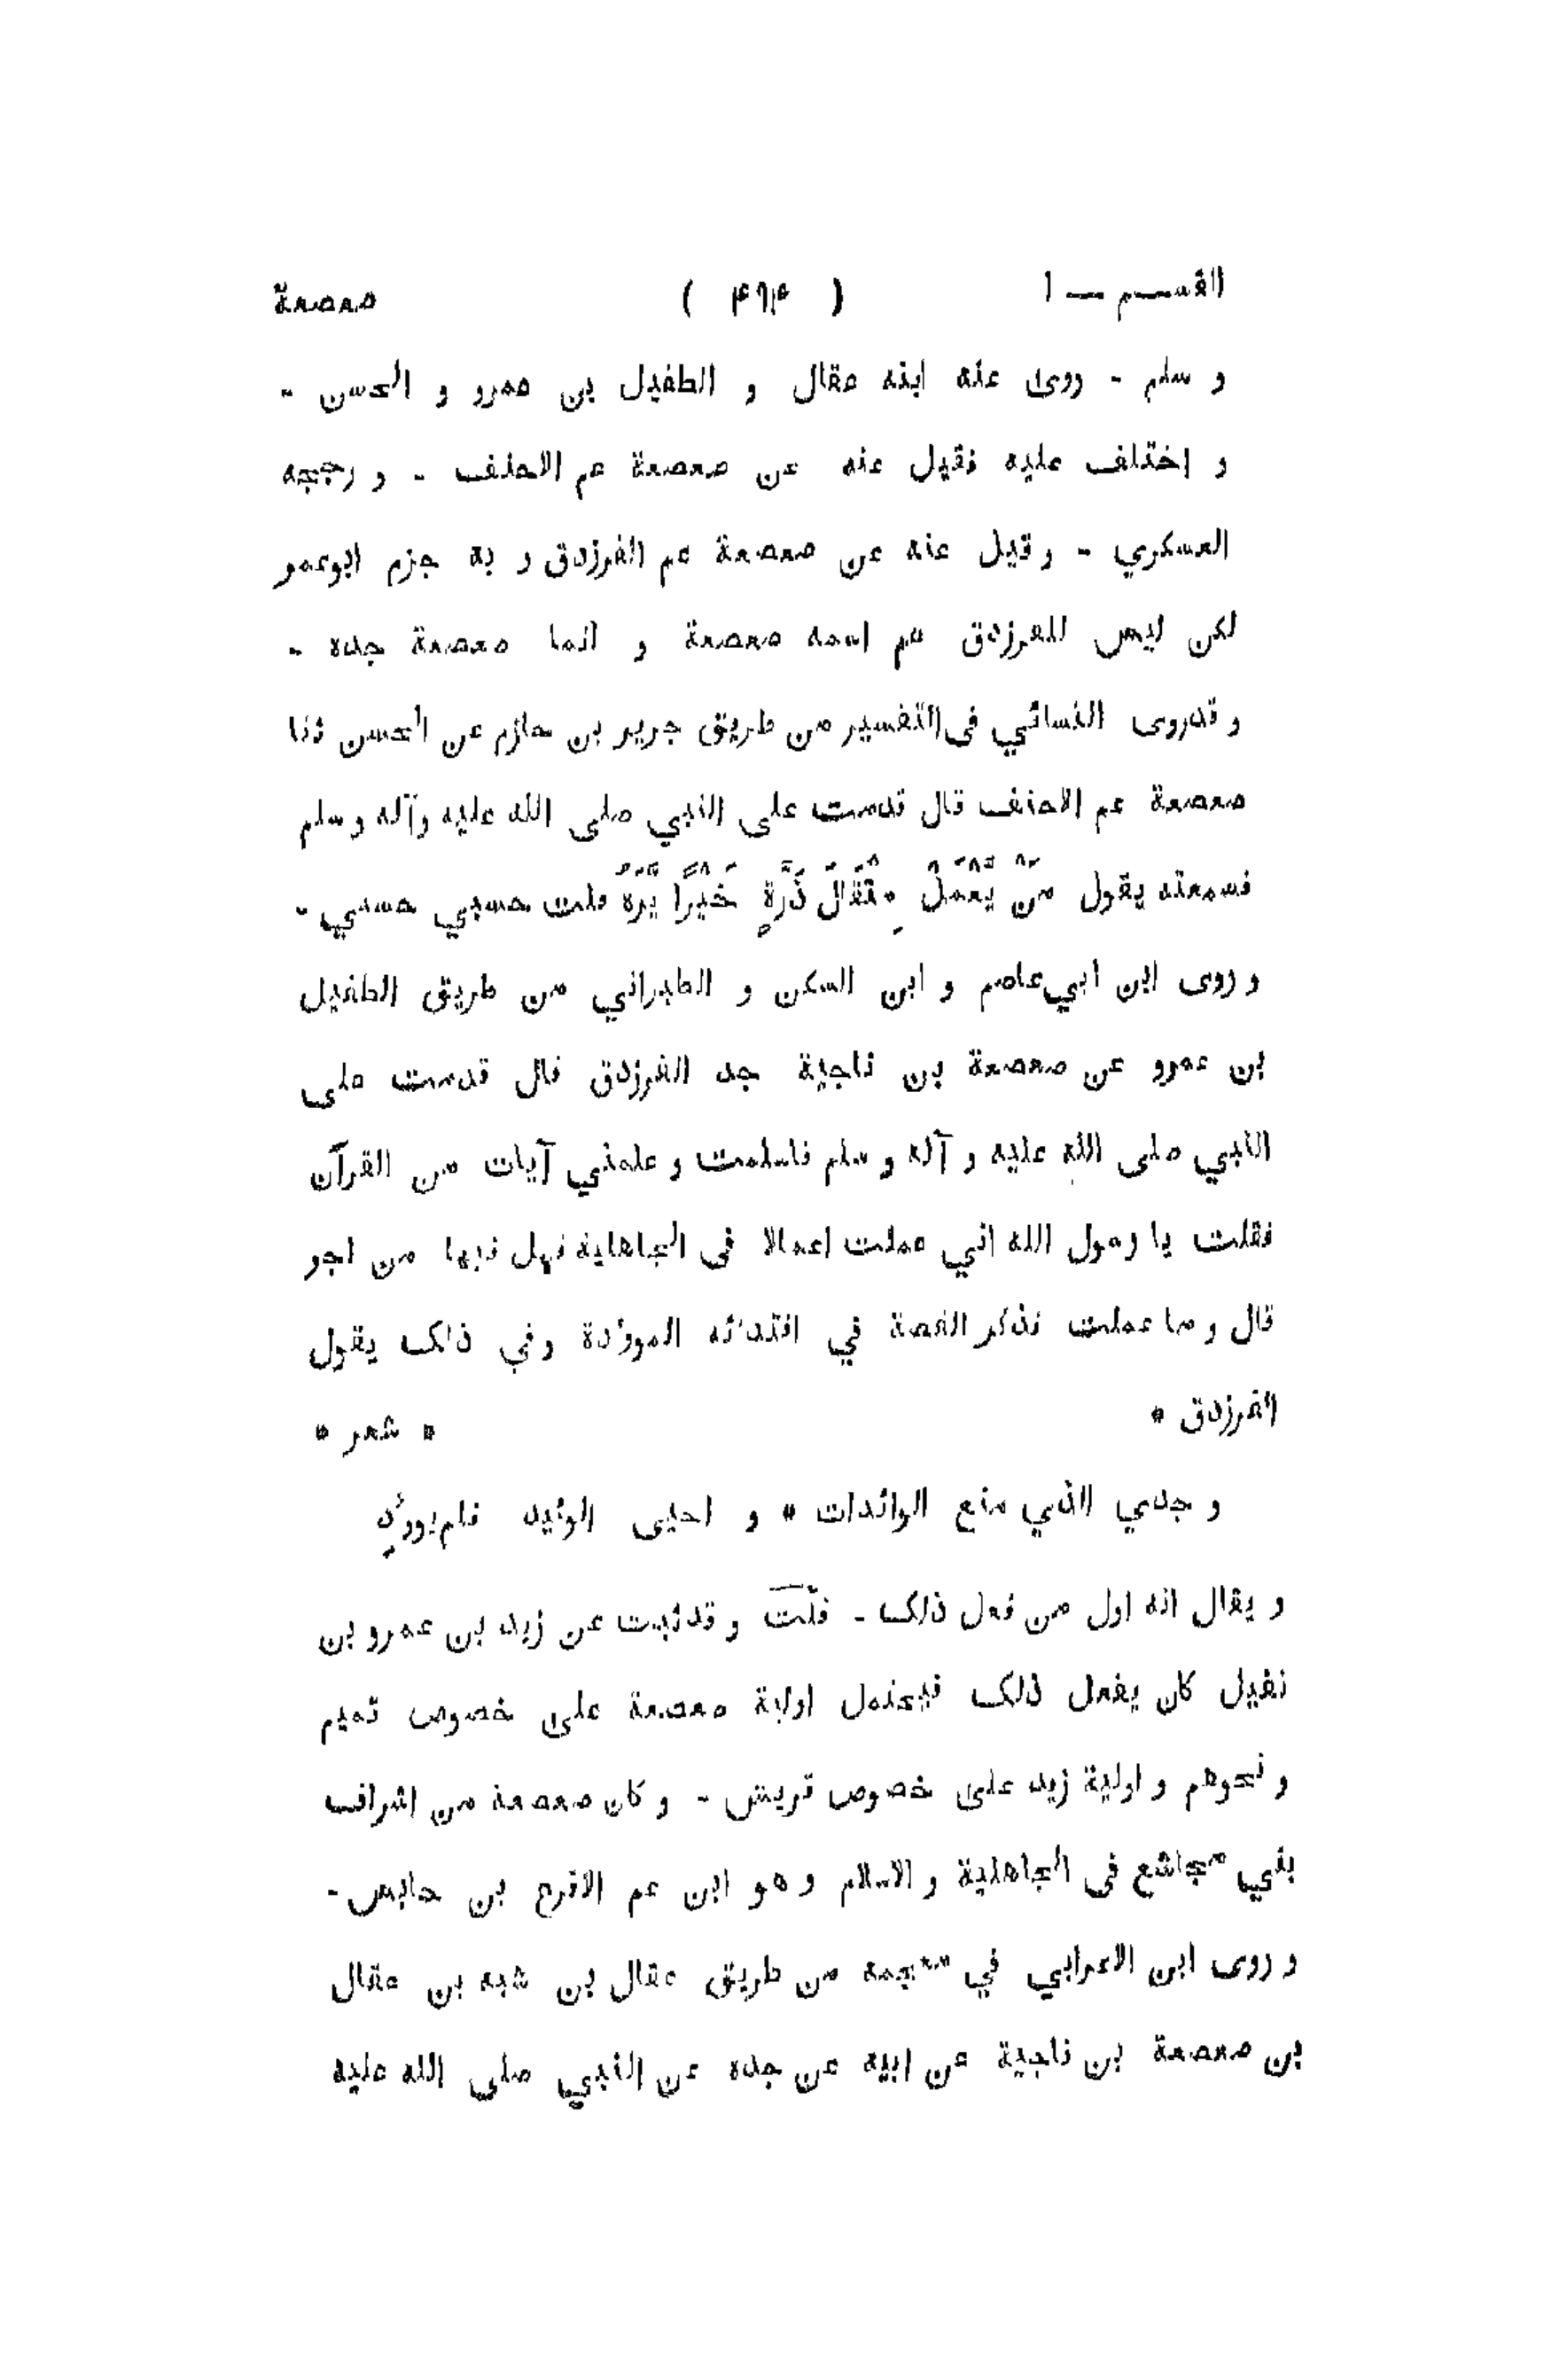 القسم — ١ ( ۴۹۴ ) صعصعة
و سلم - روى عنه ابنه عقال و الطفيل بن عمرو و الحسن -
و اختلف عليه فقيل عنه عن صعصعة عم الاحنف - و رجحه
العسكري - و قيل عنه عن صعصعة عم الفرزدق و به جزم ابوعمر
لكن ليس للفرزدق عم اسمه صعصعة و انما صعصعة جده -
و قدروى النسائي فى التفسير من طريق جرير بن حازم عن الحسن ثنا
صعصعة عم الاحنف قال قدمت على النبي صلى الله عليه وآله و سلم
فسمعته يقول مَنْ يَّعْمَلْ مِثْقَالَ ذَرَّةٍ خَيْرًا يَّرَهُ قلت حسبي حسبي -
و روى ابن ابي عاصم و ابن السكن و الطبراني من طريق الطفيل
بن عمرو عن صعصعة بن ناجية جد الفرزدق قال قدمت على
النبي صلى الله عليه و آله و سلم فاسلمت و علمني آيات من القرآن
فقلت يا رسول الله اني عملت اعمالا فى الجاهلية فهل فيها من اجر
قال و ما عملت فذكر القصة في افتدائه الموؤدة وفي ذلك يقول
الفرزدق * * شعر *
و جدي الذي منع الوائدات * و احيى الوئيد فلم يوورأدِ
و يقال انه اول من فعل ذلك - قلت و قدثبت عن زيد بن عمرو بن
نفيل كان يفعل ذلك فيحتمل اولية صعصعة على خصوص تميم
و نحوهم و اولية زيد على خصوص قريش - و كان صعصعة من اشراف
بني مجاشع فى الجاهلية و الاسلام و هو ابن عم الاقرع بن حابس -
و روى ابن الاعرابي في معجمه من طريق عقال بن شبه بن عقال
بن صعصعة بن ناجية عن ابيه عن جده عن النبي صلى الله عليه